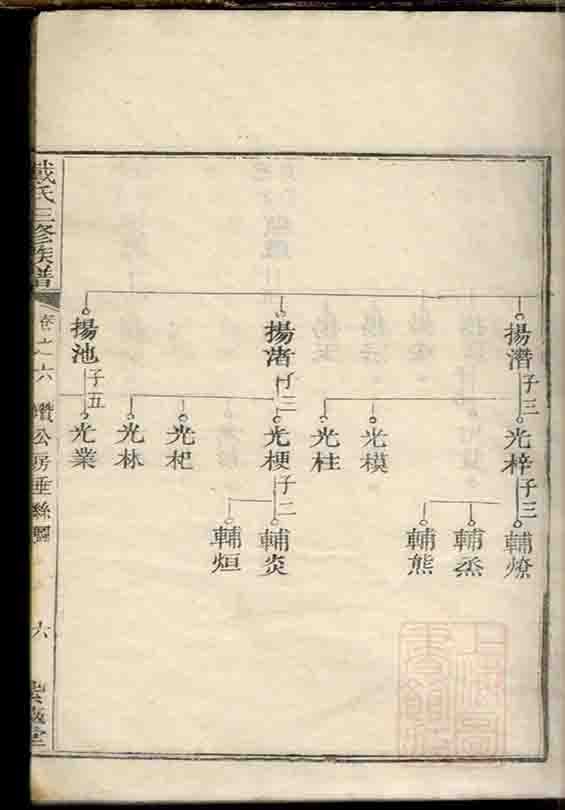 揚濳
子三
光梓
子三
輔燎
輔烝
輔熊
光模
光柱
揚渚
子三
光梗
子二
輔炎
輔烜
光杞
光林
揚池
子五
光業
戴氏三修族譜
卷之六
公房垂絲圖
六
上海圖書館藏